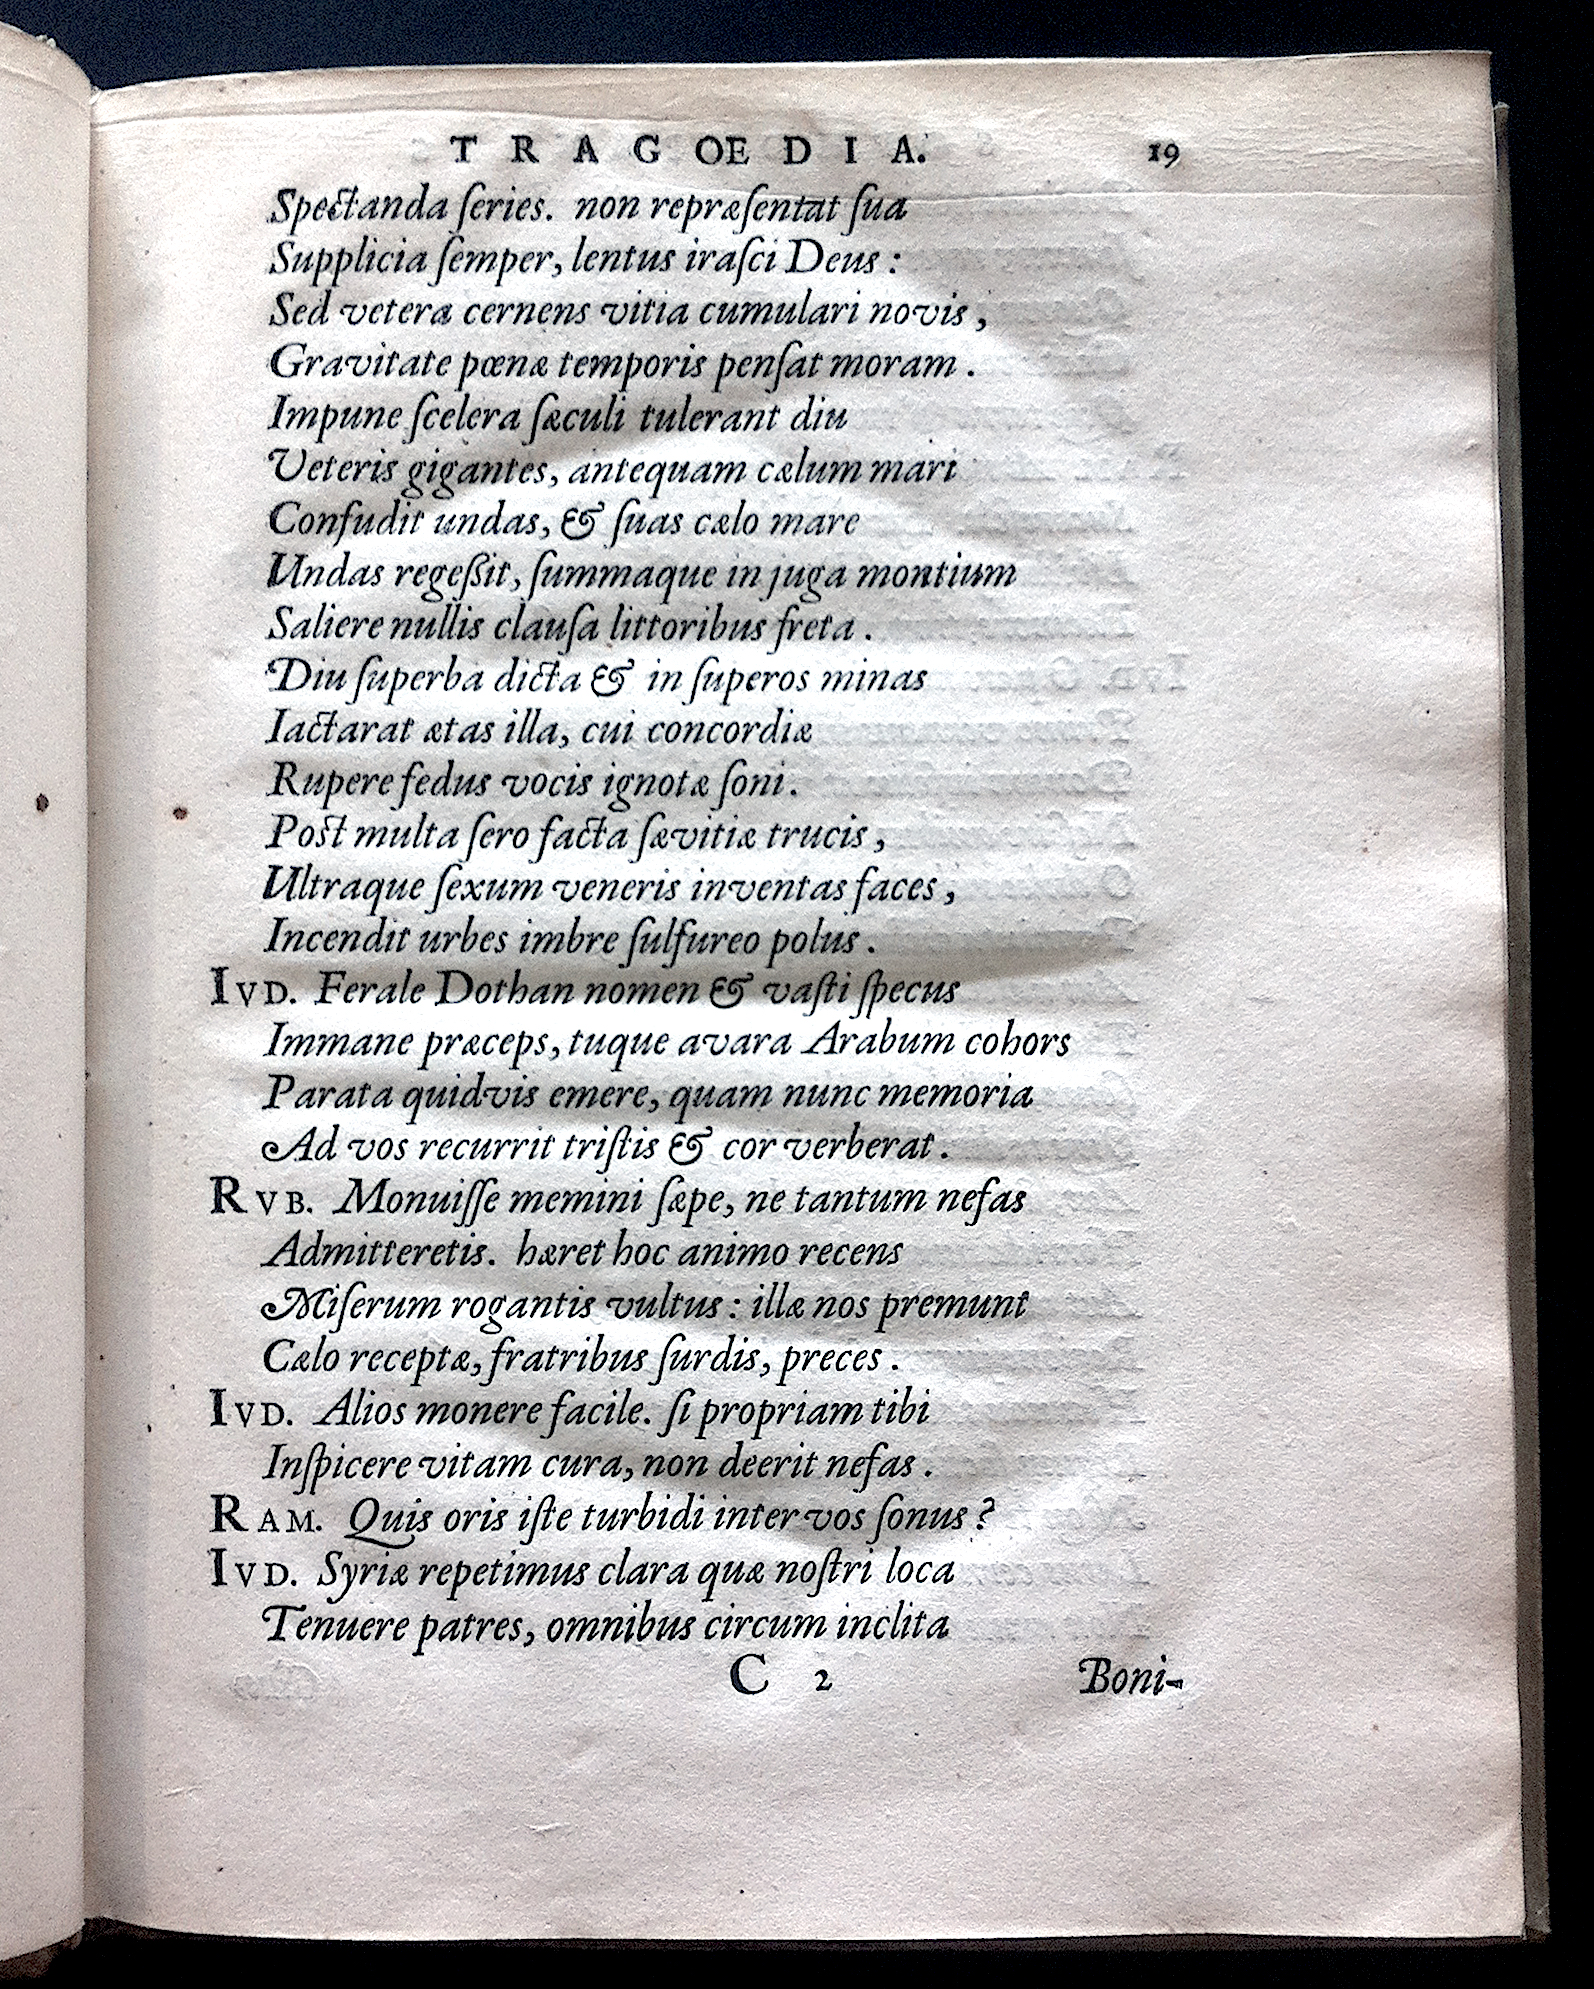 TRAGOEDIA. 19
Spectanda ſeries. non repræſentat ſua
Supplicia ſemper, lentus iraſci Deus :
Sed vetera cernens vitia cumulari novis ,
Gravitate pœnæ temporis penſat moram .
Impune ſcelera ſæculi tulerant diu
Veteris gigantes, antequam cælum mari
Confudit undas, & ſuas cælo mare
Undas regeßit, ſummaque in juga montium
Saliere nullis clauſa littoribus freta .
Diu ſuperba dicta & in ſuperos minas
Iactarat ætas illa, cui concordiæ
Rupere fedus vocis ignotæ ſoni .
Post multa ſero facta ſævitiæ trucis ,
Ultraque ſexum veneris inventas faces ,
Incendit urbes imbre ſulfureo polus .
IVD. Ferale Dothan nomen & vaſti ſpecus
Immane præceps, tuque avara Arabum cohors
Parata quidvis emere, quam nunc memoria
Ad vos recurrit triſtis & cor verberat .
RVB. Monuiſſe memini ſæpe, ne tantum nefas
Admitteretis. hæret hoc animo recens
Miſerum rogantis vultus : illæ nos premunt
Cælo receptæ, fratribus ſurdis, preces .
IVD. Alios monere facile. ſi propriam tibi
Inſpicere vitam cura, non deerit nefas .
RAM. Quis oris iſte turbidi inter vos ſonus ?
IVD. Syriæ repetimus clara quæ noſtri loca
Tenuere patres, omnibus circum inclita
C 2 Boni-